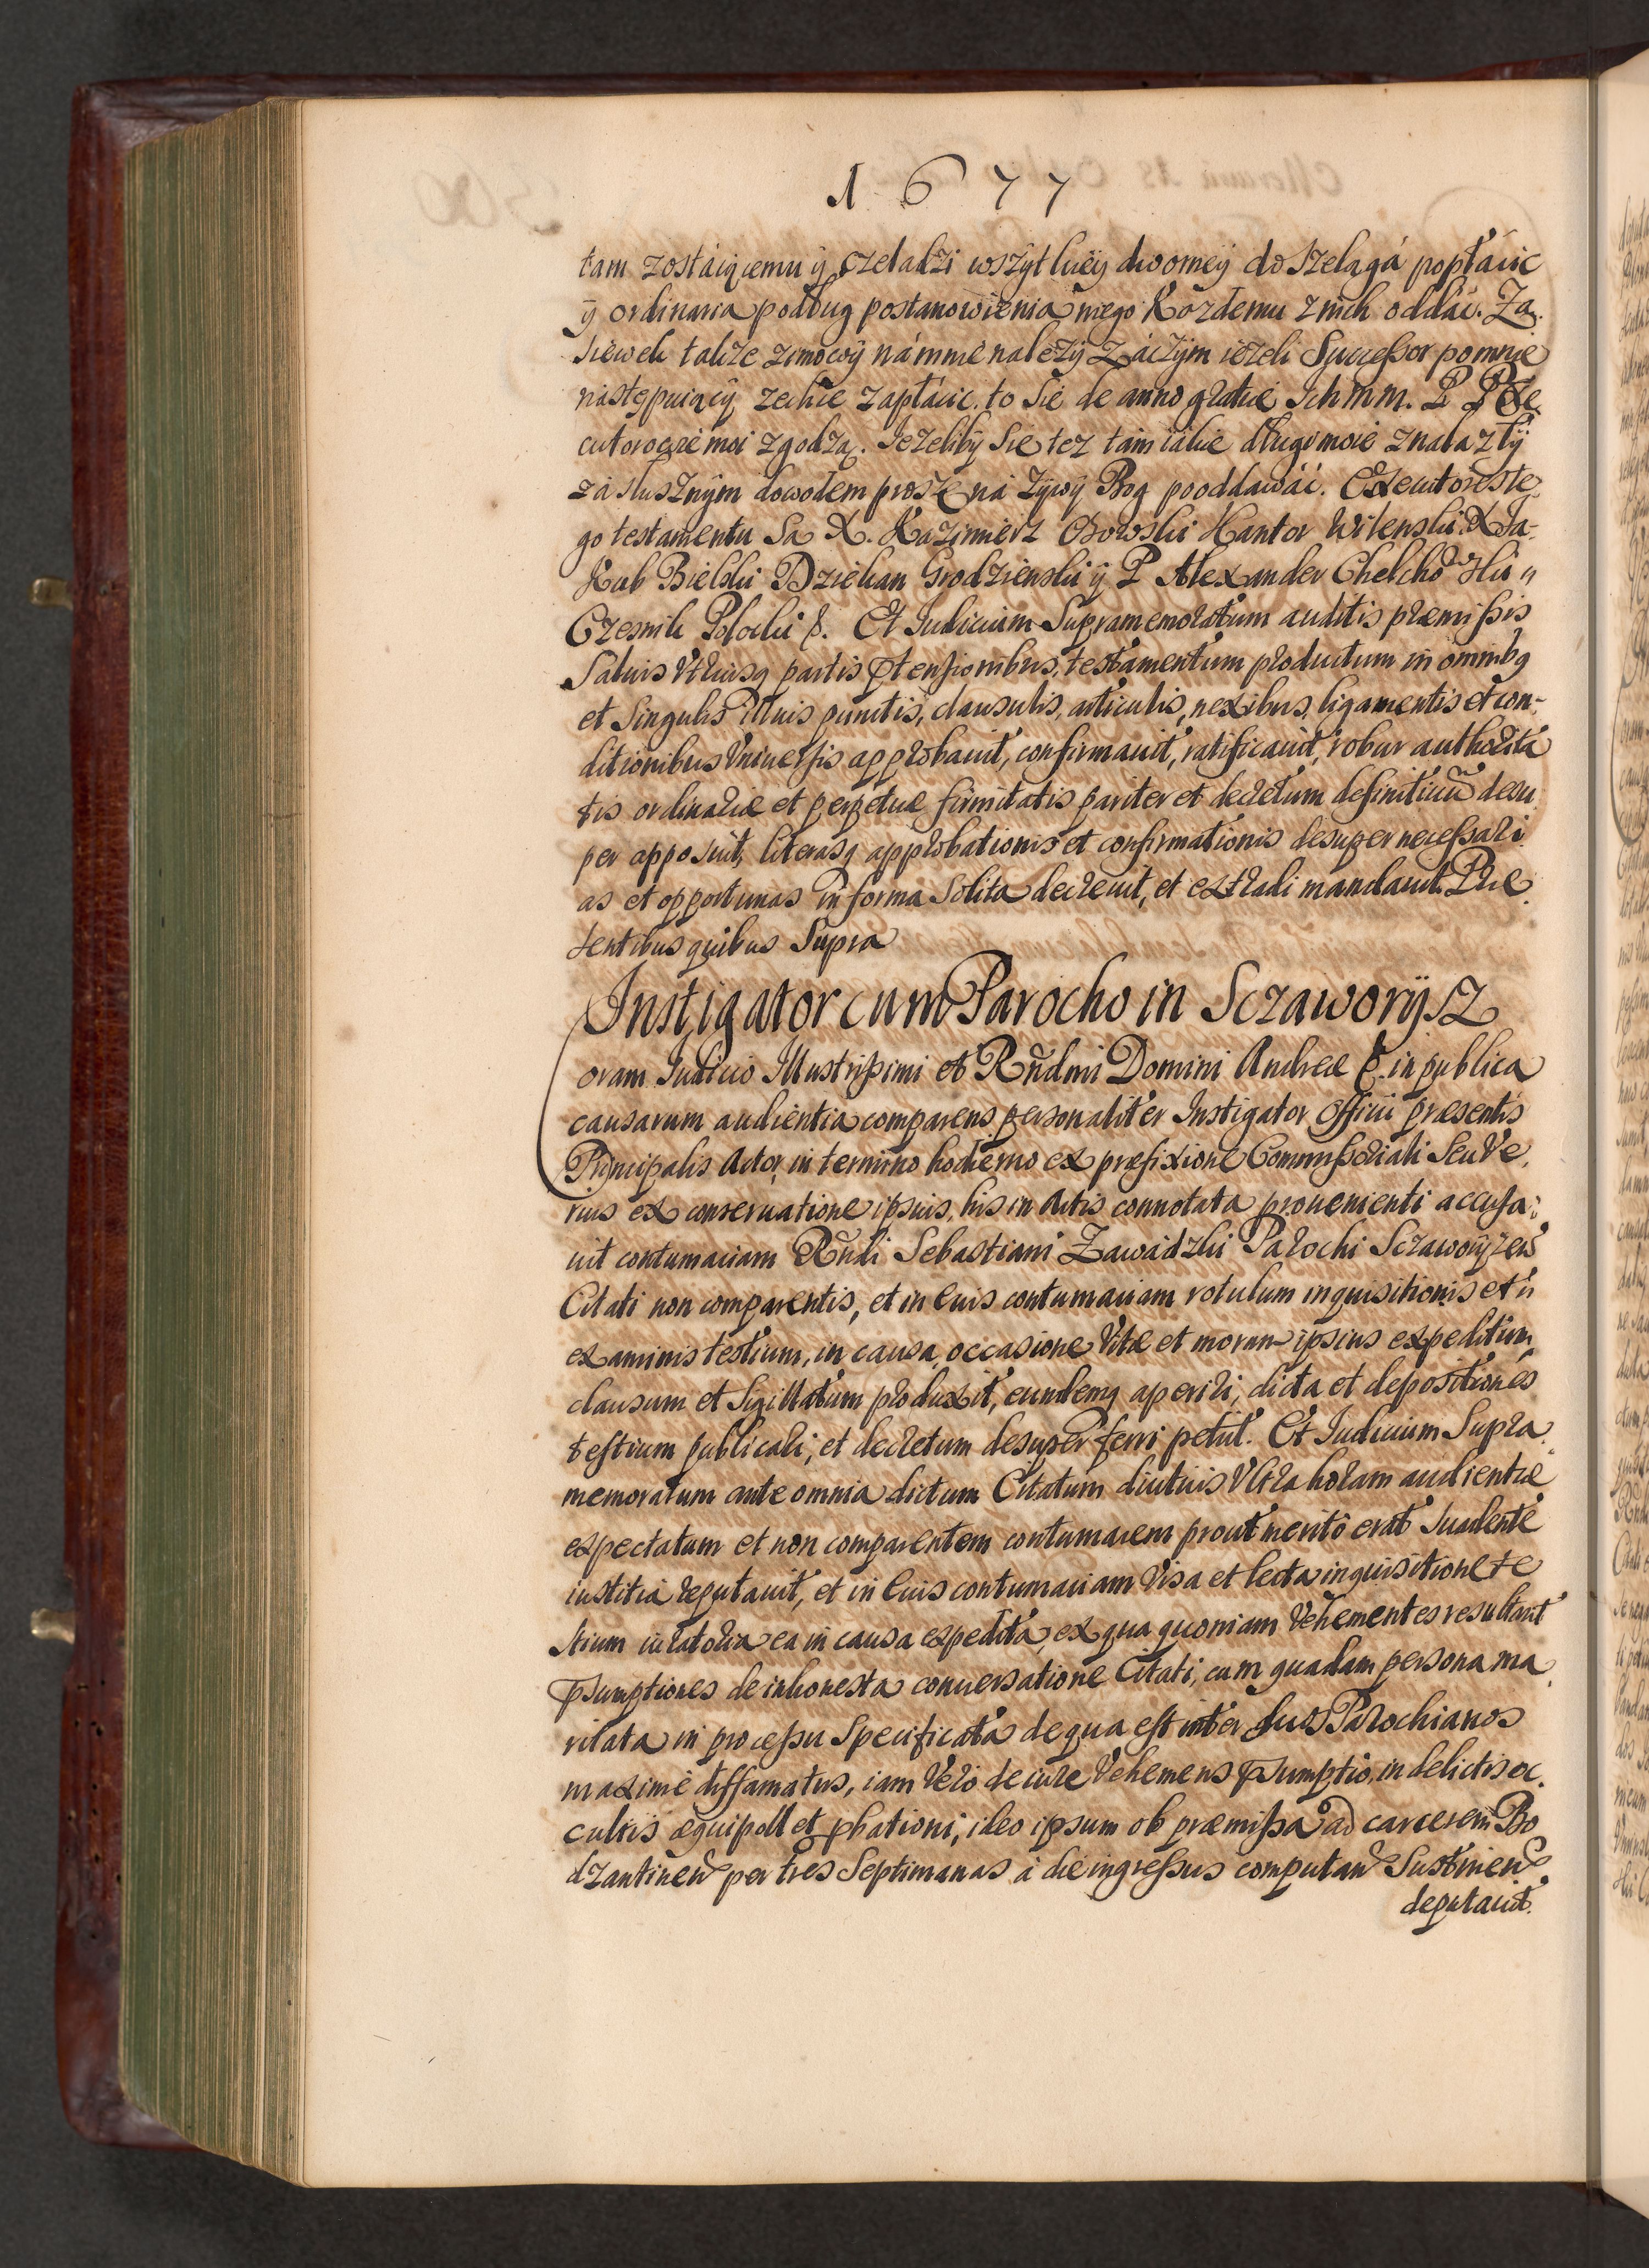 1677
tam zostáiącemu ÿ czeladzi wszÿtkieÿ dworneÿ do szelągá popłácic
ÿ ordinaria podług postanowienia mego kozdemu z nich oddác. Za-
siewek takze zimowÿ ná mnie nalezÿ Záczÿm iezeli Successor po mnie
nástępuiącÿ zechce zapłácic, to sie de anno gratiæ Ichmm. P P Exe
cutorowie moi zgodzą. Iezelibÿ sie tez tám iákie długi moie znalazłÿ
zá słusznÿm dowodem proszę ná Zÿwÿ Bog pooddawáć. Executores te-
go testamentu są X. Kazimierz Kantor Wilenski X Ia-
kub Bielski Dziekan Grodzienski ÿ P Alexander Chelchowski
Czesnik Polocki &. Et Iudicium Supramemoratum auditis præmissis
Saluis Vtriusq partis ptensionibus, testamentum productum in omnibq
et Singulis suis punctis, clausulis, articulis, nexibus, ligamentis et con-
ditionibus Vniuersis approbauit, confirmauit, ratificauit, robur authorita
tis ordinariæ et perpetuæ firmitatis pariter et decretum definitiuū desu
per apposuit, literasq approbationis et confirmationis desuper necessari
as et opportunas in forma Solita decreuit, et extradi mandauit. Præ
sentibus quibus Supra
Instigator cum Parocho in Sczaworÿsz
oram Iudicio Illustrissimi et Rñdmi Domini Andreæ & in publica
causarum audientia comparens personaliter Instigator Officii præsentis
Principalis Actor, in termino hodierno ex præfixione Commissoriali Seu Ve
rius ex conseruatione ipsius, his in Actis connotata prouenienti accusa-
uit contumaciam Rñdi Sebastiani Zawádzki Parochi Sczaworÿzen
Citati non comparentis, et in Eius contumaciam rotulum inquisitionis et
examinis testium, in causa, occasione Vitæ et morum ipsius expeditum,
clausum et Sigillatum produxit, eundemq aperiri, dicta et depositiones
testium publicari; et decretum desuper ferri petiit. Et Iudicium Supra
memoratum ante omnia dictum Citatum diutius Vltra horam audientiæ
expectatum et non comparentem contumacem prout meritò erat Suadente
iustitia reputauit, et in Eius contumaciam Visa et lecta inquisitione te
stium iuratoria ea in causa expedita, ex qua quoniam Vehementes resultant
psumptiones de inhonesta conuersatione Citati, cum quadam persona ma
ritata in processu Specificata de qua est inter suos Parochianos
maximè diffamatus, iam Verò de iure Vehemens psumptio, in delictis oc
cultis æquipollet pbationi, ideo ipsum ob præmissa ad carcerem Bo
dzantinen per tres Septimanas à die ingressus computan Sustinen
deputauit.